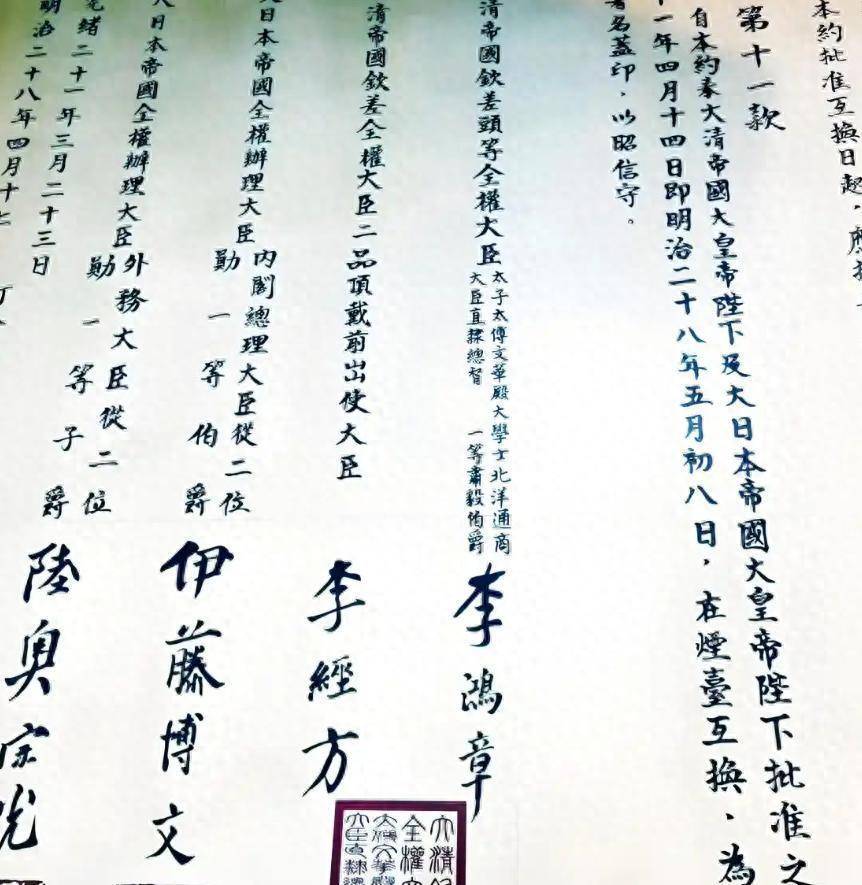 本約批准互換日起，應
第十一款
自本約奉大清帝國大皇帝陛下及大日本帝國大皇帝陛下批准之
一年四月十四日即明治二十八年五月初八日，在煙臺互換，為
署名蓋印，以昭信守。
清帝國欽差頭等全權大臣
太子太傅文華殿大學士北洋通商
大臣直隸總督 一等肅毅伯爵
李鴻章
清帝國欽差全權大臣二品頂戴前出使大臣
李經方
日本帝國全權辦理大臣
內閣總理大臣從二位
勳一等伯爵
伊藤博文
日本帝國全權辦理大臣
外務大臣從二位
勳一等子爵
陸奧宗光
光緒二十一年三月二十三日
明治二十八年四月十七
大清
全權
大臣直隸